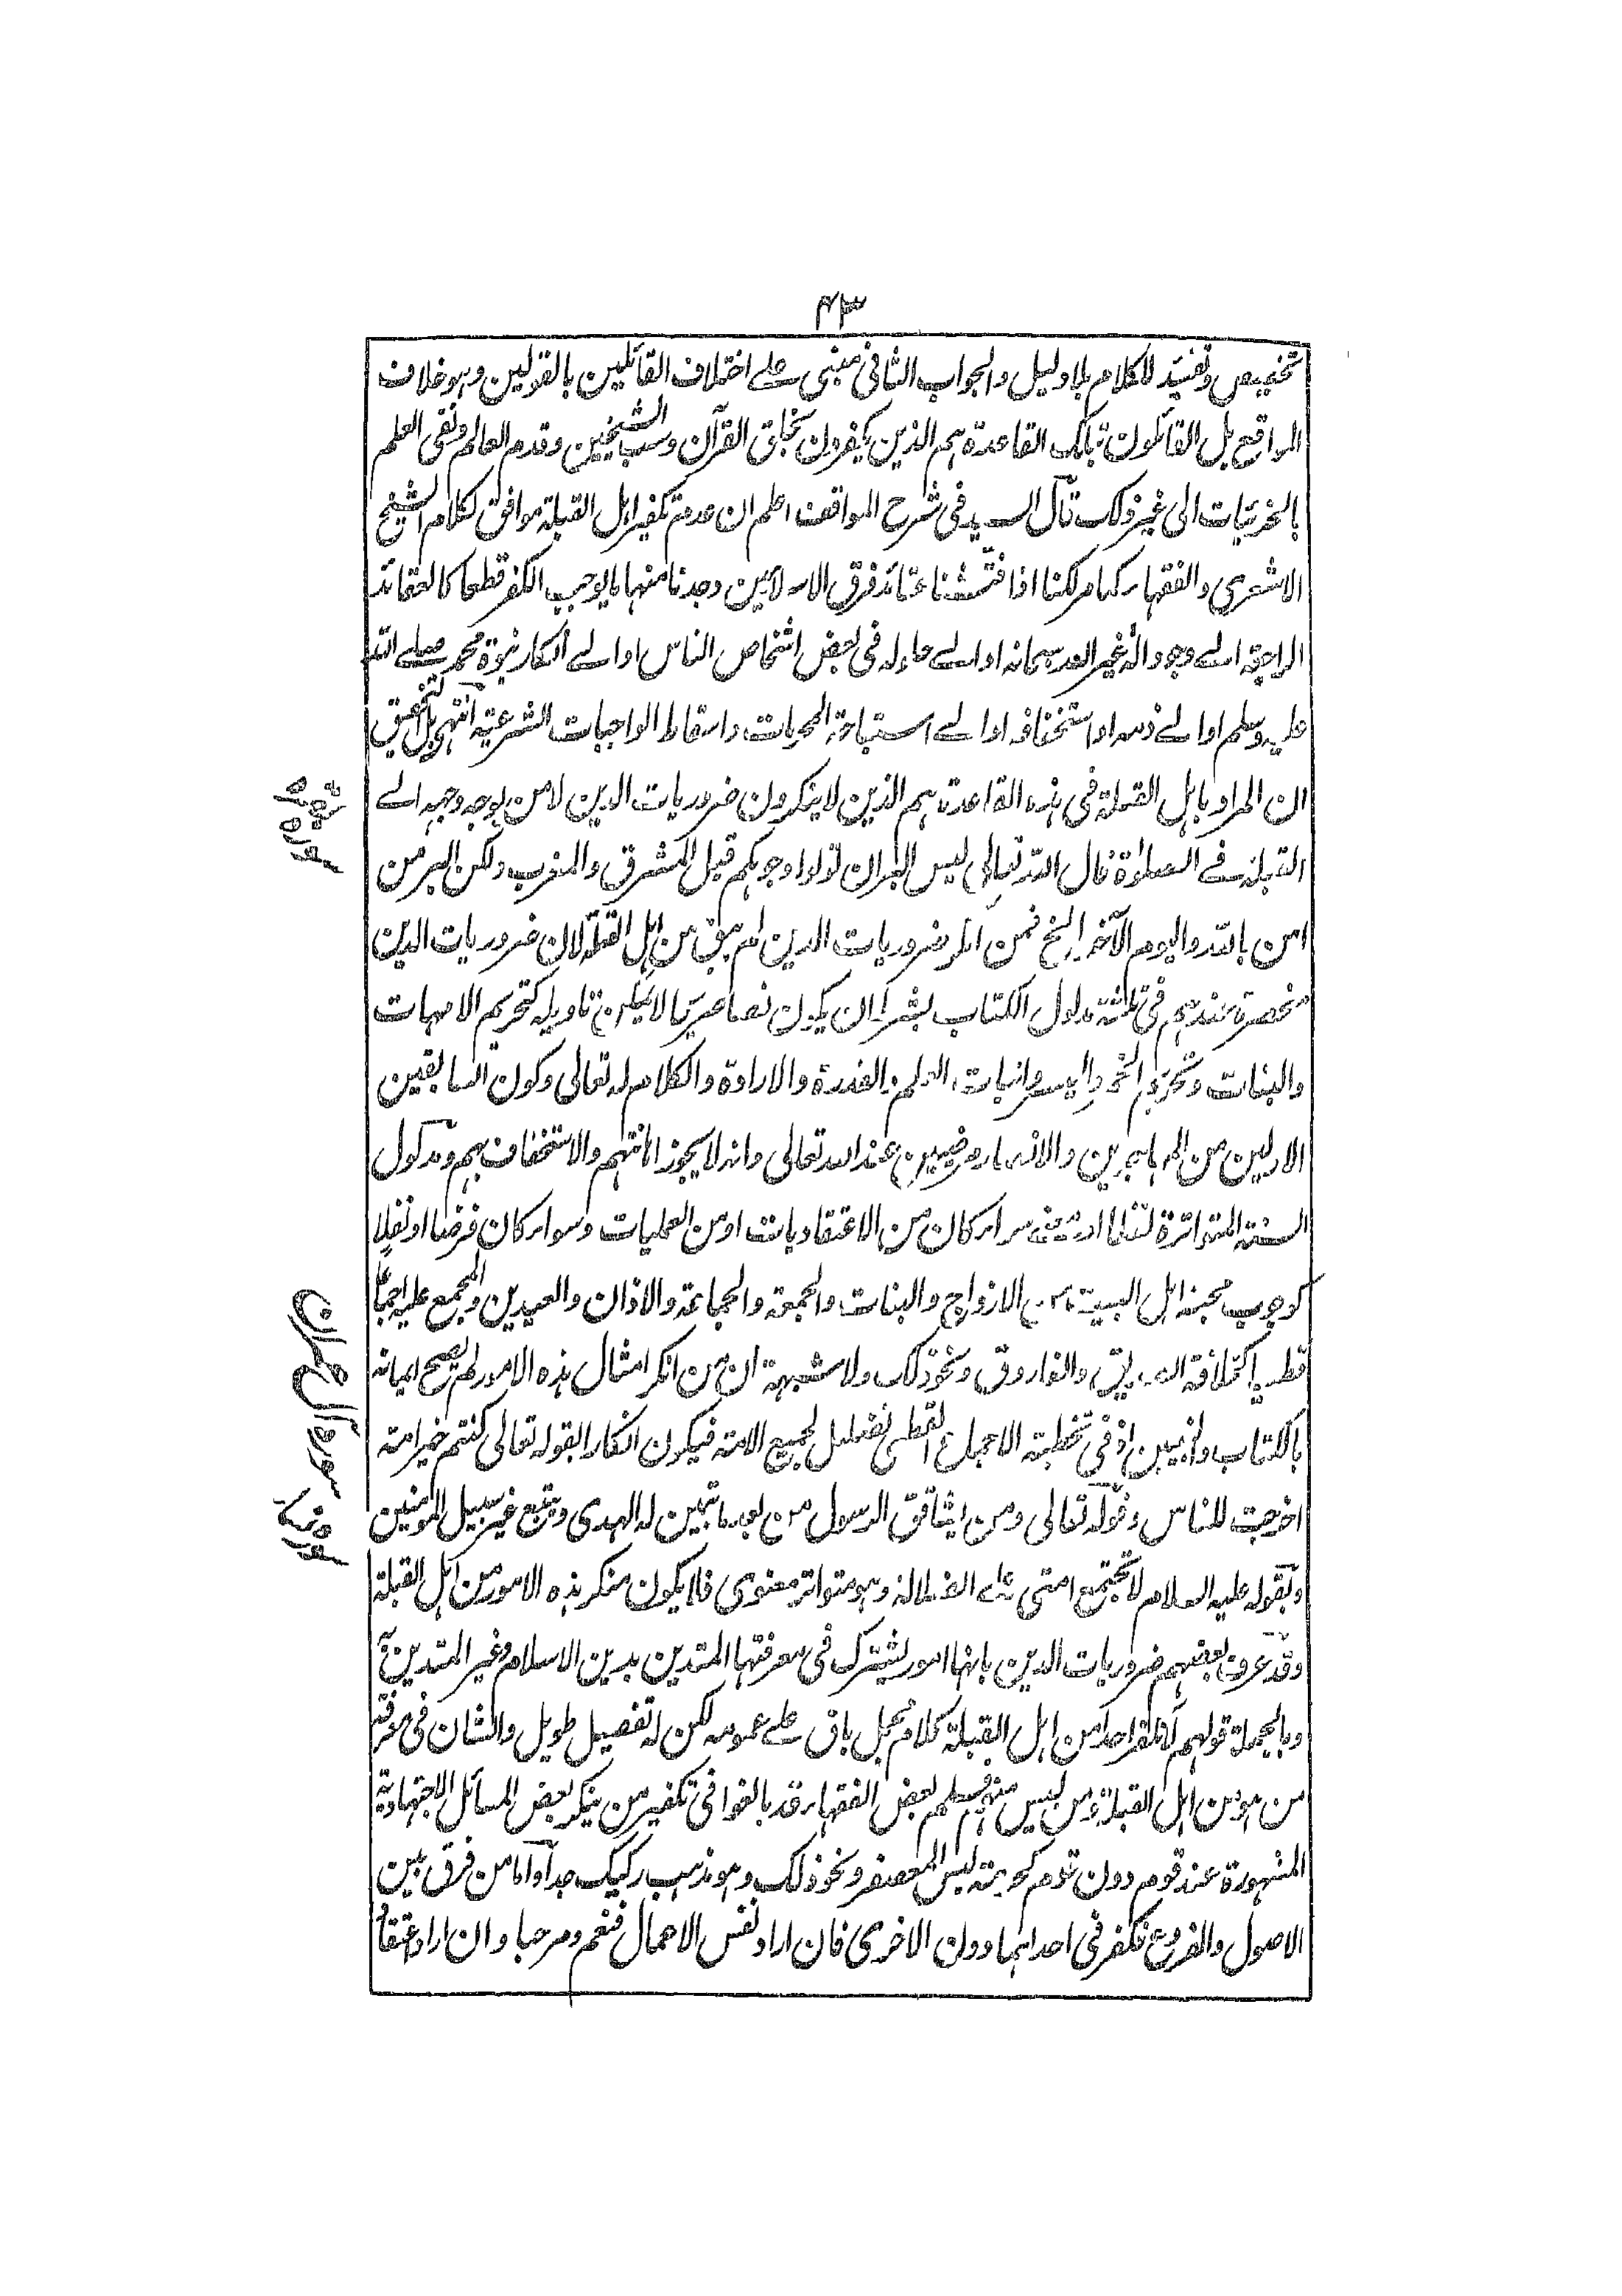 ٤٣
تخصيص وتقييد للكلام بلا دليل والجواب الثاني مبني على اختلاف القائلين بالقولين وهو خلاف
الواقع بل القائلون بتلك القاعدة هم الذين يكفرون بخلق القرآن وسب الشيخين وقدم العالم ونفى العلم
بالجزئيات الى غير ذلك قال السيد في شرح المواقف اعلم ان عدم تكفير اهل القبلة موافق لكلام الشيخ
الاشعري والفقهاء كما مر لكنا اذا فتشنا عقائد فرق الاسلاميين وجدنا منها ما يوجب الكفر قطعا كالعقائد
الراجعة الى وجود اله غير الله سبحانه او الى حلوله في بعض اشخاص الناس او الى انكار نبوة محمد صلى الله
عليه وسلم او الى ذمه او استخفافه او الى استباحة المحرمات واسقاط الواجبات الشرعية انتهى بل التحقيق
ان المراد باهل القبلة في هذه القاعدة هم الذين لا ينكرون ضروريات الدين لا من يوجه وجهه الى
القبلة في الصلوة قال الله تعالى ليس البر ان تولوا وجوهكم قبل المشرق والمغرب ولكن البر من
امن بالله واليوم الآخر الخ فمن انكر ضروريات الدين لم يبق من اهل القبلة لان ضروريات الدين
منحصرة عندهم في ثلثة مدلول الكتاب بشرط ان يكون نصا صريحا لا يمكن تاويله كتحريم الامهات
والبنات وتحريم الخمر والميسر واثبات العلم والقدرة والارادة والكلام له تعالى وكون السابقين
الاولين من المهاجرين والانصار مرضيين عند الله تعالى وانه لا يجوز اهانتهم والاستخفاف بهم ومدلول
السنة المتواترة لفظا او معنى سواء كان من الاعتقاديات او من العمليات وسواء كان فرضا او نفلا
كوجوب محبة اهل البيت من الازواج والبنات والجمعة والجماعة والاذان والعيدين والمجمع عليه اجماعا
قطعيا كخلافة الصديق والفاروق ونحو ذلك ولا شبهة ان من انكر امثال هذه الامور لم يصح ايمانه
بالكتاب والنبيين اذ في تخطية الاجماع القطعي تضليل لجميع الامة فيكون انكارا لقوله تعالى كنتم خير امة
اخرجت للناس وقوله تعالى ومن يشاقق الرسول من بعد ما تبين له الهدى ويتبع غير سبيل المومنين
وبقوله عليه السلام لا تجتمع امتي على الضلالة وهو متواتر معنوى فلا يكون منكر هذه الامور من اهل القبلة
وقد عرف بعضهم ضروريات الدين بانها امور يشترك في معرفتها المتدين بدين الاسلام وغير المتدين به
وبالجملة قولهم لا نكفر احدا من اهل القبلة كلام مجمل باق على عمومه لكن له تفصيل طويل والشان في معرفة
من هو من اهل القبلة ومن ليس منهم بعض الفقهاء قد بالغوا في تكفير من ينكر بعض المسائل الاجتهادية
المشهورة عند قوم دون قوم كحرمة لبس المعصفر ونحو ذلك وهو مذهب ركيك جدا واما من فرق بين
الاصول والفروع فكفر في احداهما دون الاخرى فان اراد نفس الاعمال فنعم ومرحبا وان اراد اعتقاد
سوره بقره
سوره آل عمران
سوره نساء